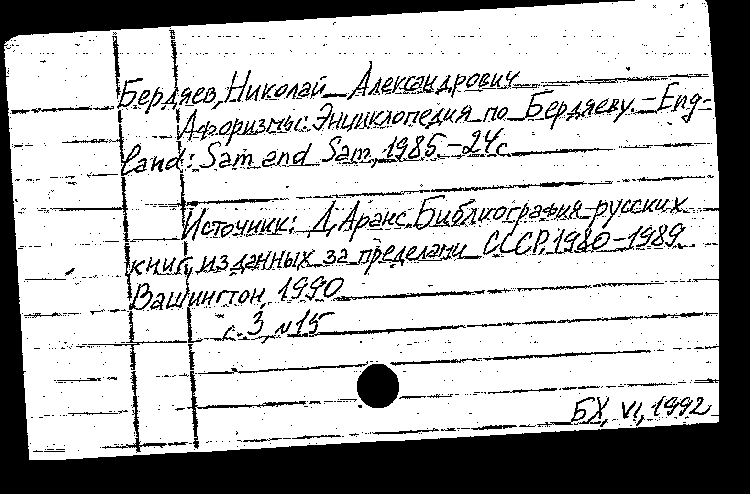 Бердяев, Николай Александрович
Афоризмы. Энциклопедия по Бердяеву. – Eng-
land: Sam and Sam, 1985. – 24с
Источник: Д. Аранс. Библиография русских
книг, изданных за пределами СССР, 1980–1989.
Вашингтон, 1990
с. 3, №15
БХ, VI, 1992